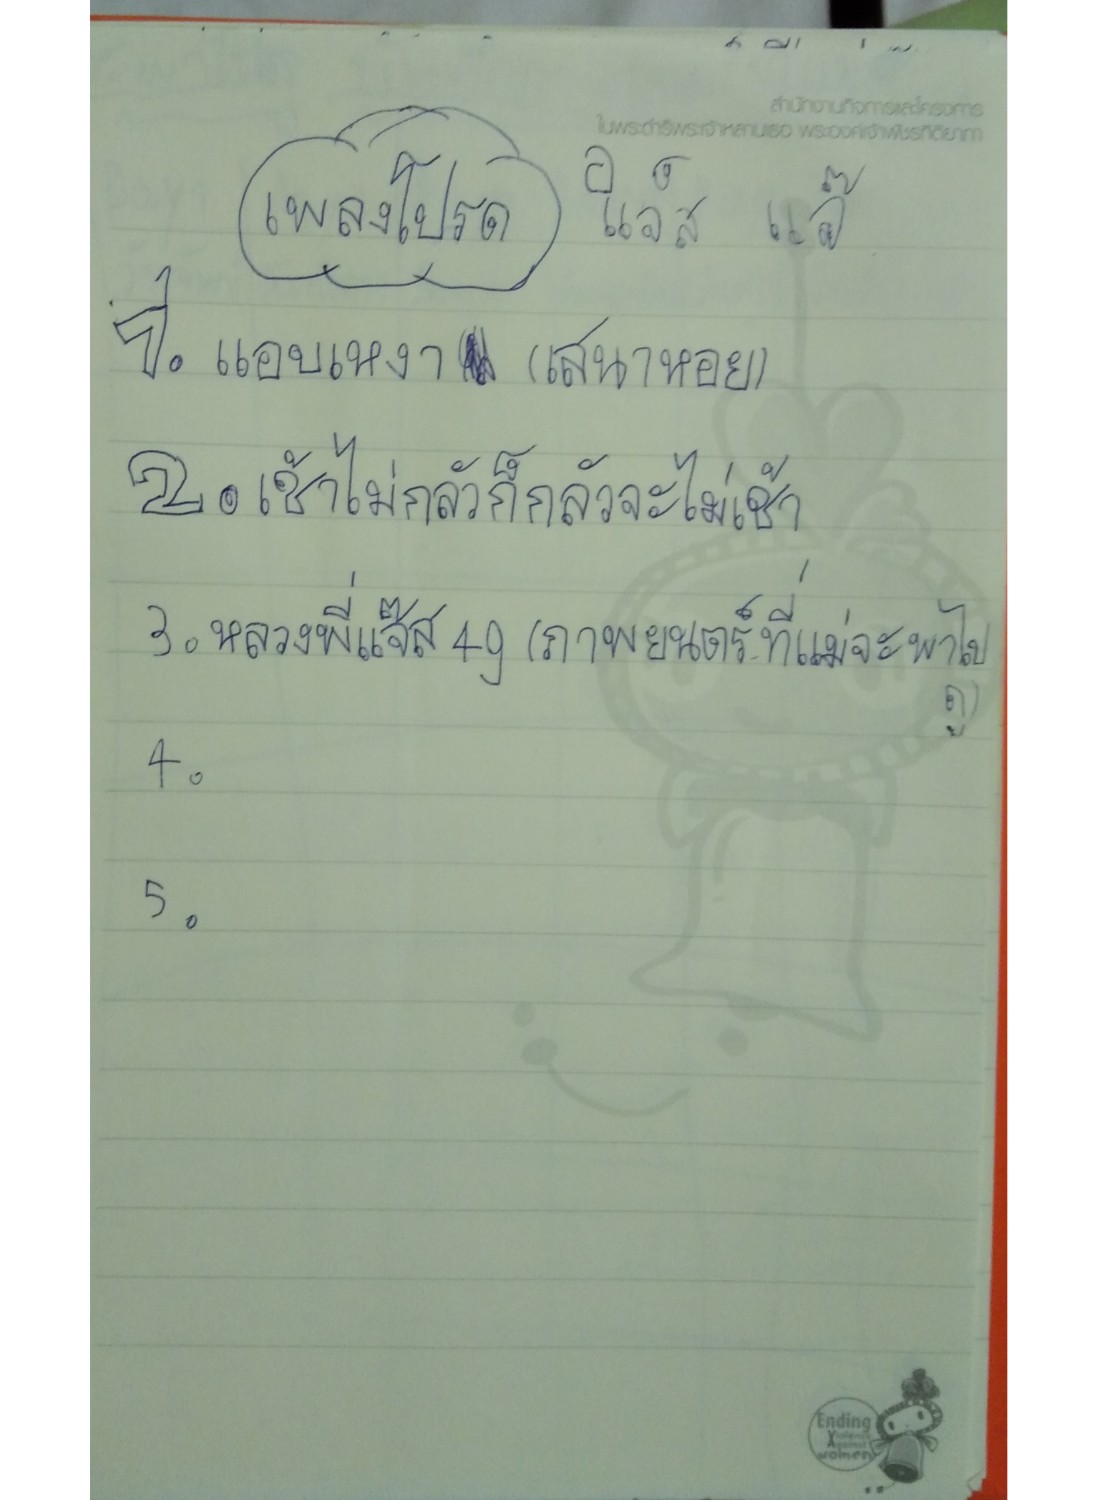 สำนักงานกิจการและโครงการ
ในพระดำริพระเจ้าหลานเธอ พระองค์เจ้าพัชรกิติยาภา
เพลงโปรด
1. แอบเหงา (เสนาหอย)
2. เช้าไม่กลัวก็กลัวจะไม่เช้า
3. หลวงพี่แจ๊ส 4g (ภาพยนตร์ที่แม่จะพาไป
ดู)
4.
5.
Ending
Violence
Against
women